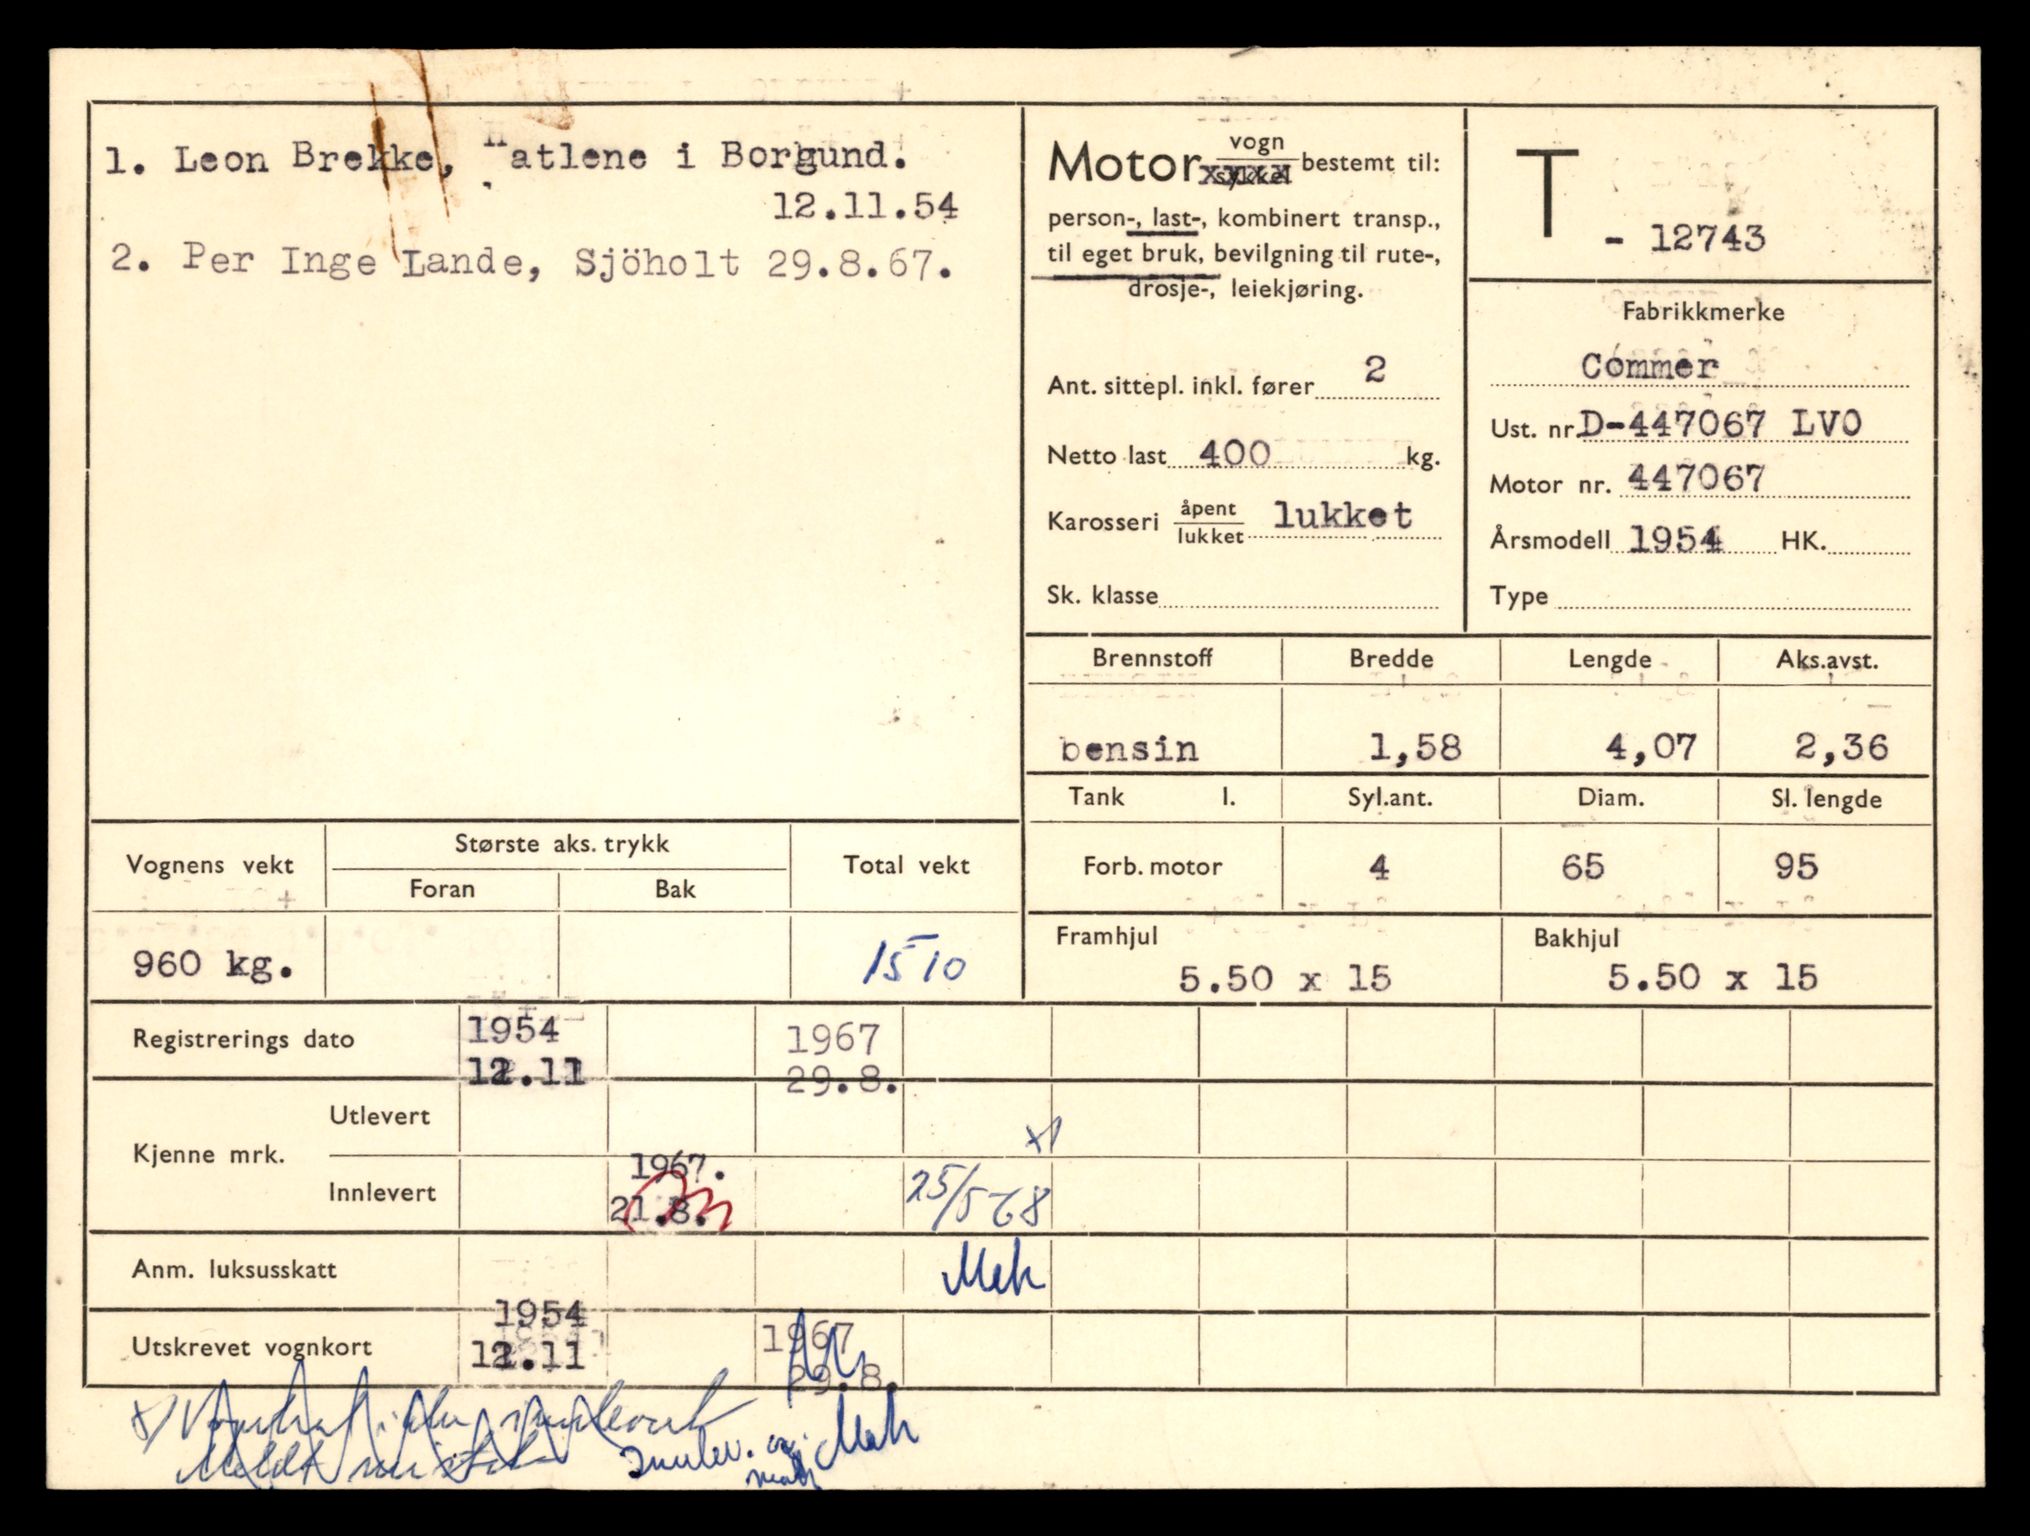 1. Leon Brekke, Hatlene i Borgund.
12.11.54
2. Per Inge Lande, Sjöholt 29.8.67.
Motor vogn / sykkel xxxx bestemt til:
person-, last-, kombinert transp.,
til eget bruk, bevilgning til rute-,
drosje-, leiekjøring.
Ant. sittepl. inkl. fører 2
Netto last 400 kg.
Karosseri åpent / lukket lukket
Sk. klasse
T - 12743
Fabrikkmerke
Commer
Ust. nr. D-447067 LVO
Motor nr. 447067
Årsmodell 1954 HK.
Type
Brennstoff Bredde Lengde Aks.avst.
bensin 1,58 4,07 2,36
Tank l. Syl.ant. Diam. Sl. lengde
Forb. motor 4 65 95
Framhjul Bakhjul
5.50 x 15 5.50 x 15
Vognens vekt Største aks. trykk Total vekt
Foran Bak
960 kg. 1510
Registrerings dato 1954 1967
12.11 29.8.
Kjenne mrk. Utlevert x)
Innlevert 1967. 25/5 68
21.8.
Anm. luksusskatt Mek
Utskrevet vognkort 1954 1967
12.11 29.8.
x)
Meldt mistet Innlev. Mek